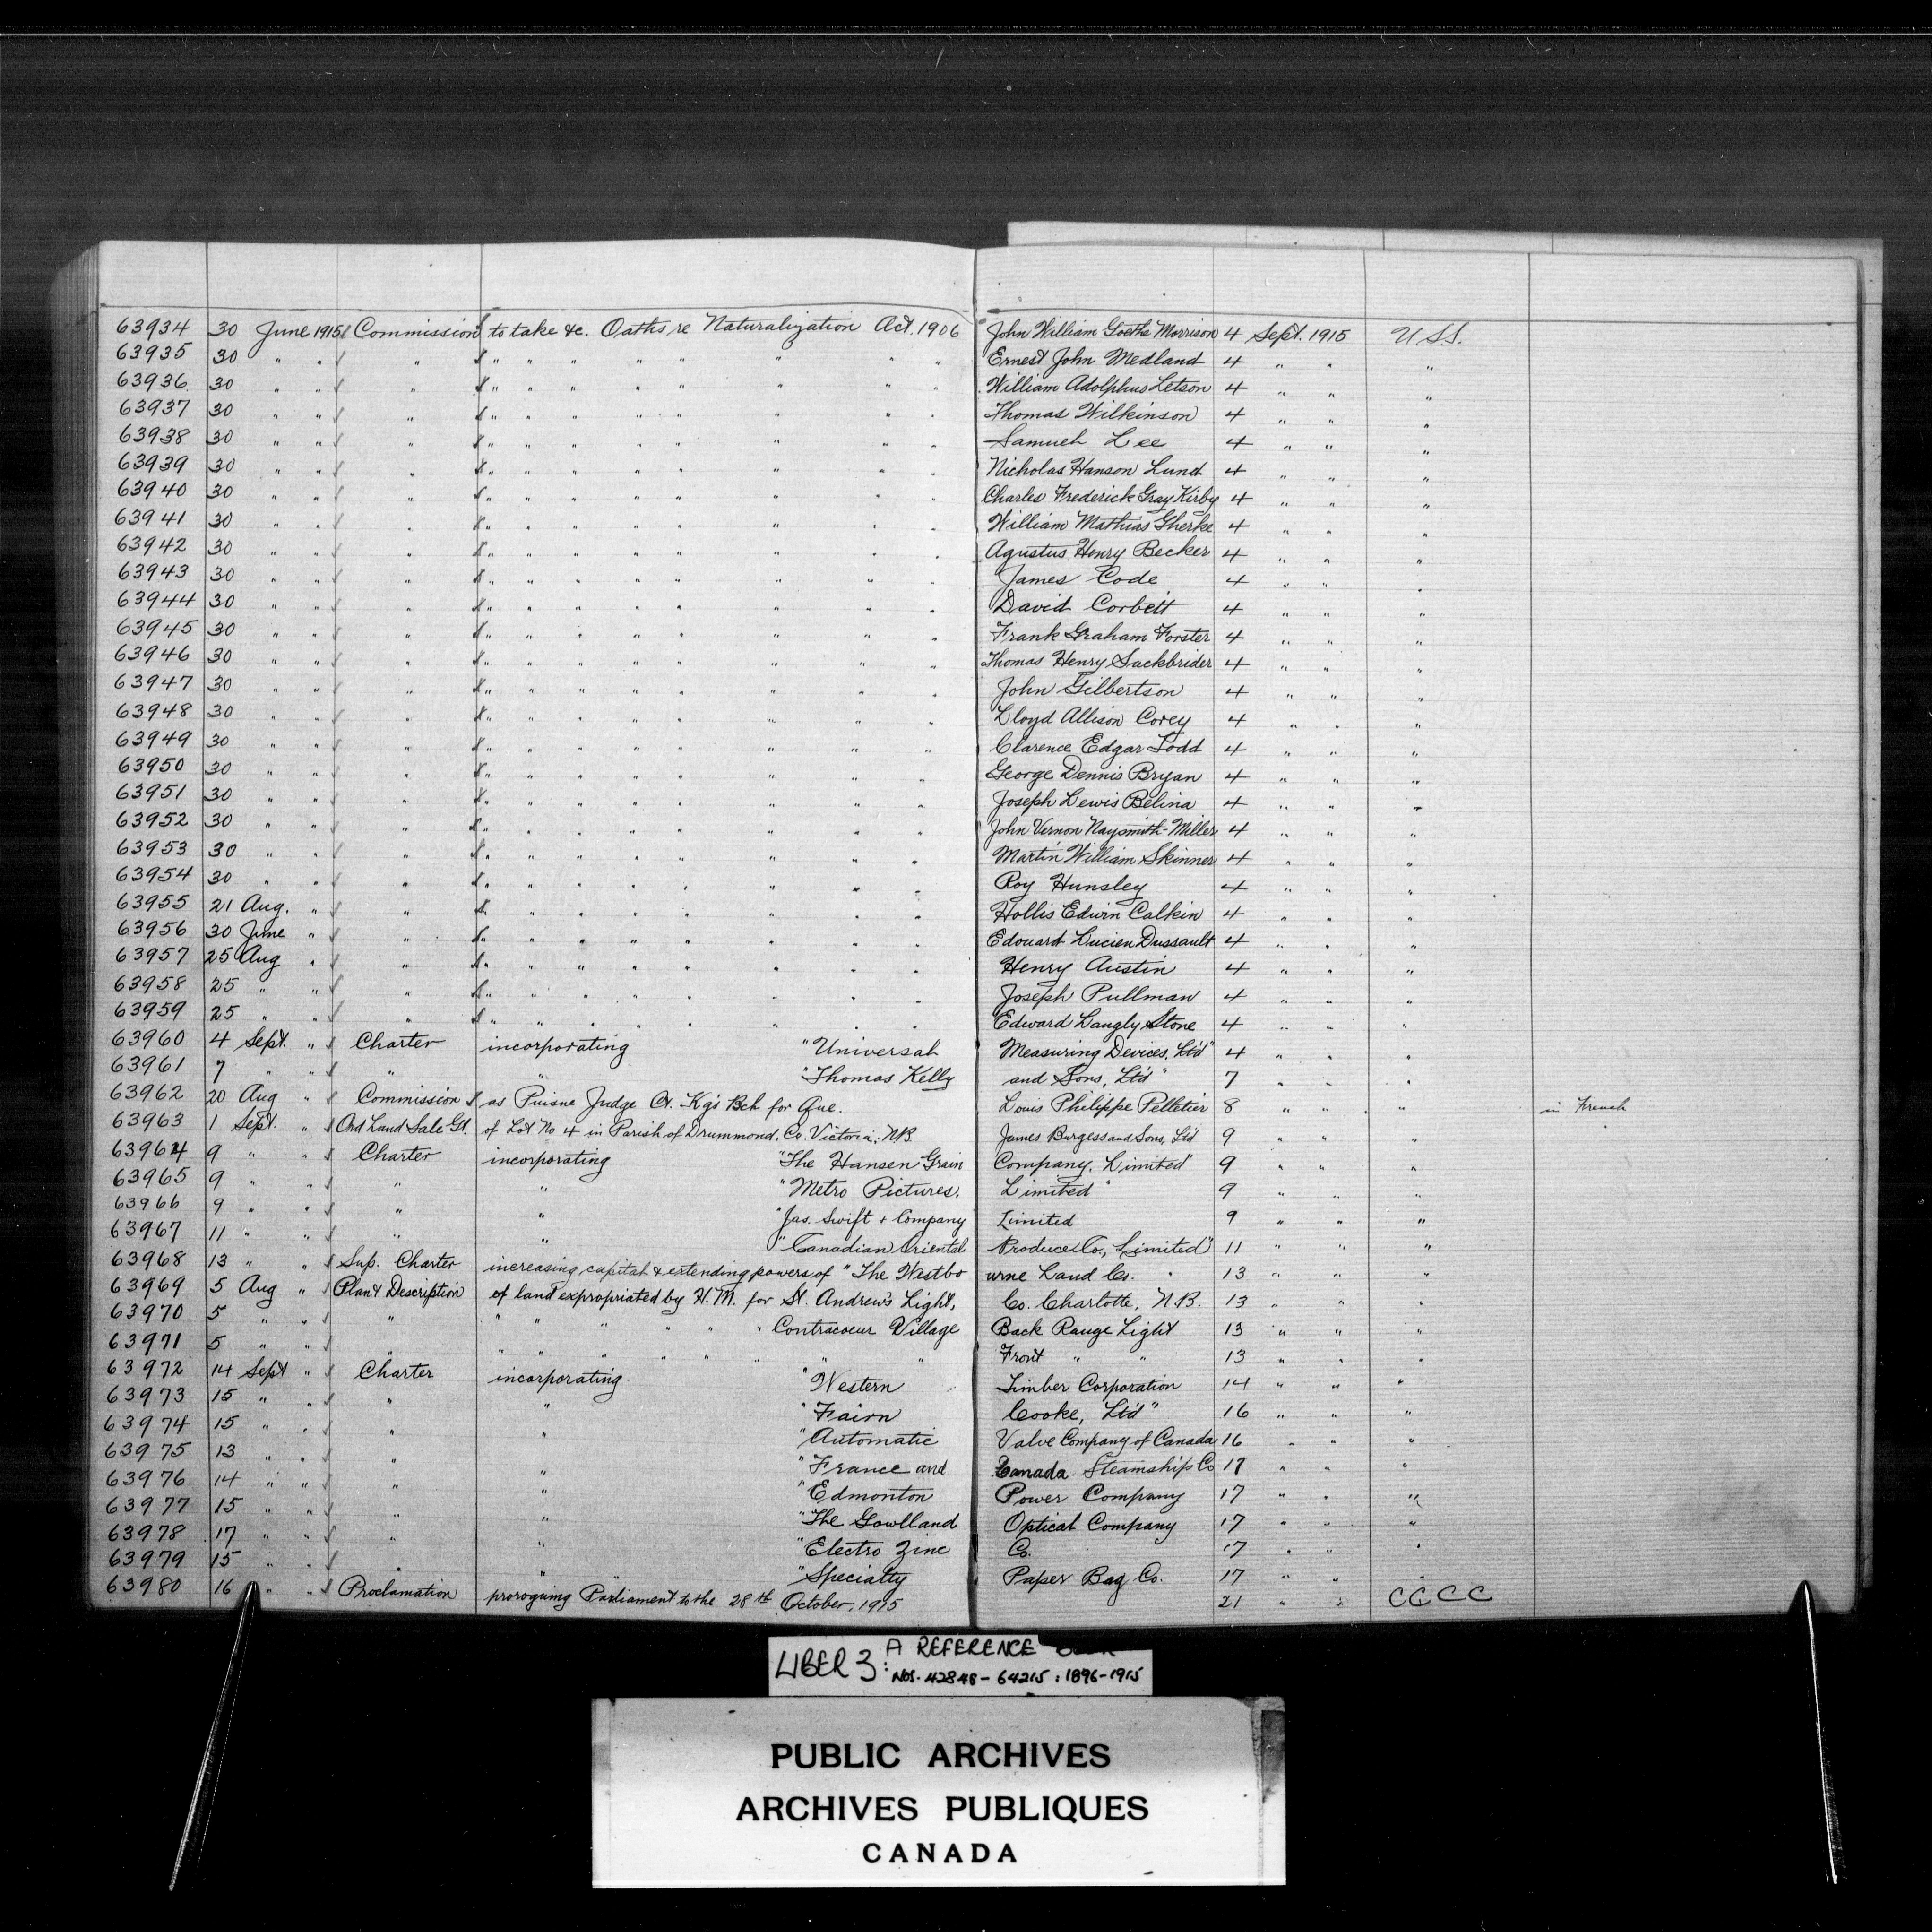 63934 30 June 1915 Commission to take &c. Oaths re Naturalization Act. 1906 John William Goethe Morrison 4 Sept. 1915 U.S.S.
63935 30 " " " " " " " " " " " Ernest John Medland 4 " " "
63936 30 " " " " " " " " " " " William Adolphus Letson 4 " " "
63937 30 " " " " " " " " " " " Thomas Wilkinson 4 " " "
63938 30 " " " " " " " " " " " Samuel Lee 4 " " "
63939 30 " " " " " " " " " " " Nicholas Hanson Lund 4 " " "
63940 30 " " " " " " " " " " " Charles Frederick Gray Kirby 4 " " "
63941 30 " " " " " " " " " " " William Mathias Gherke 4 " " "
63942 30 " " " " " " " " " " " Agustus Henry Becker 4 " " "
63943 30 " " " " " " " " " " " James Code 4 " " "
63944 30 " " " " " " " " " " " David Corbett 4 " " "
63945 30 " " " " " " " " " " " Frank Graham Forster 4 " " "
63946 30 " " " " " " " " " " " Thomas Henry Suckbrider 4 " " "
63947 30 " " " " " " " " " " " John Gilbertson 4 " " "
63948 30 " " " " " " " " " " " Lloyd Allison Corey 4 " " "
63949 30 " " " " " " " " " " " Clarence Edgar Todd 4 " " "
63950 30 " " " " " " " " " " " George Dennis Bryan 4 " " "
63951 30 " " " " " " " " " " " Joseph Lewis Belina 4 " " "
63952 30 " " " " " " " " " " " John Vernon Naysmith-Miller 4 " " "
63953 30 " " " " " " " " " " " Martin William Skinner 4 " " "
63954 30 " " " " " " " " " " " Roy Hunsley 4 " " "
63955 21 Aug. " " " " " " " " " " Hollis Edwin Calkin 4 " " "
63956 30 June " " " " " " " " " " Edouard Lucien Dussault 4 " " "
63957 25 Aug " " " " " " " " " " Henry Austin 4 " " "
63958 25 " " " " " " " " " " " Joseph Pullman 4 " " "
63959 25 " " " " " " " " " " " Edward Langly Stone 4 " " "
63960 4 Sept. " Charter incorporating "Universal Measuring Devices, Lt'd" 4 " " "
63961 7 " " " " "Thomas Kelly and Sons, Lt'd" 7 " " "
63962 20 Aug " Commission as Puisne Judge Ct. Kg's Bch for Que. Louis Philippe Pelletier 8 " " " in French
63963 1 Sept. " Ord Land Sale Gt. of Lot No 4 in Parish of Drummond, Co. Victoria, N.B. James Burgess and Sons, Lt'd 9 " " "
63964 9 " " Charter incorporating "The Hansen Grain Company, Limited" 9 " " "
63965 9 " " " " "Metro Pictures, Limited" 9 " " "
63966 9 " " " " "Jas. Swift + Company Limited 9 " " "
63967 11 " " " " "Canadian Oriental Produce Co., Limited" 11 " " "
63968 13 " " Sup. Charter increasing capital & extending powers of "The Westbo urne Land Co. " 13 " " "
63969 5 Aug " Plan & Description of land expropriated by H.M. for St. Andrew's Light, Co. Charlotte, N.B. 13 " " "
63970 5 " " " " " " " " " Contracoeur Village Back Range Light 13 " " "
63971 5 " " " " " " " " " " " Front " " 13 " " "
63972 14 Sept " Charter incorporating "Western Timber Corporation 14 " " "
63973 15 " " " " "Fairn Cooke, Lt'd" 16 " " "
63974 15 " " " " "Automatic Valve Company of Canada 16 " " "
63975 13 " " " " "France and Canada Steamship Co 17 " " "
63976 14 " " " " "Edmonton Power Company 17 " " "
63977 15 " " " " "The Gowlland Optical Company 17 " " "
63978 17 " " " " "Electro Zinc Co. 17 " " "
63979 15 " " " " "Specialty Paper Bag Co. 17 " " "
63980 16 " " Proclamation proroguing Parliament to the 28th October, 1915 21 " " CCCC
LIBER 3: A REFERENCE
NOS. 42848 - 64215 : 1896-1915
PUBLIC ARCHIVES
ARCHIVES PUBLIQUES
CANADA